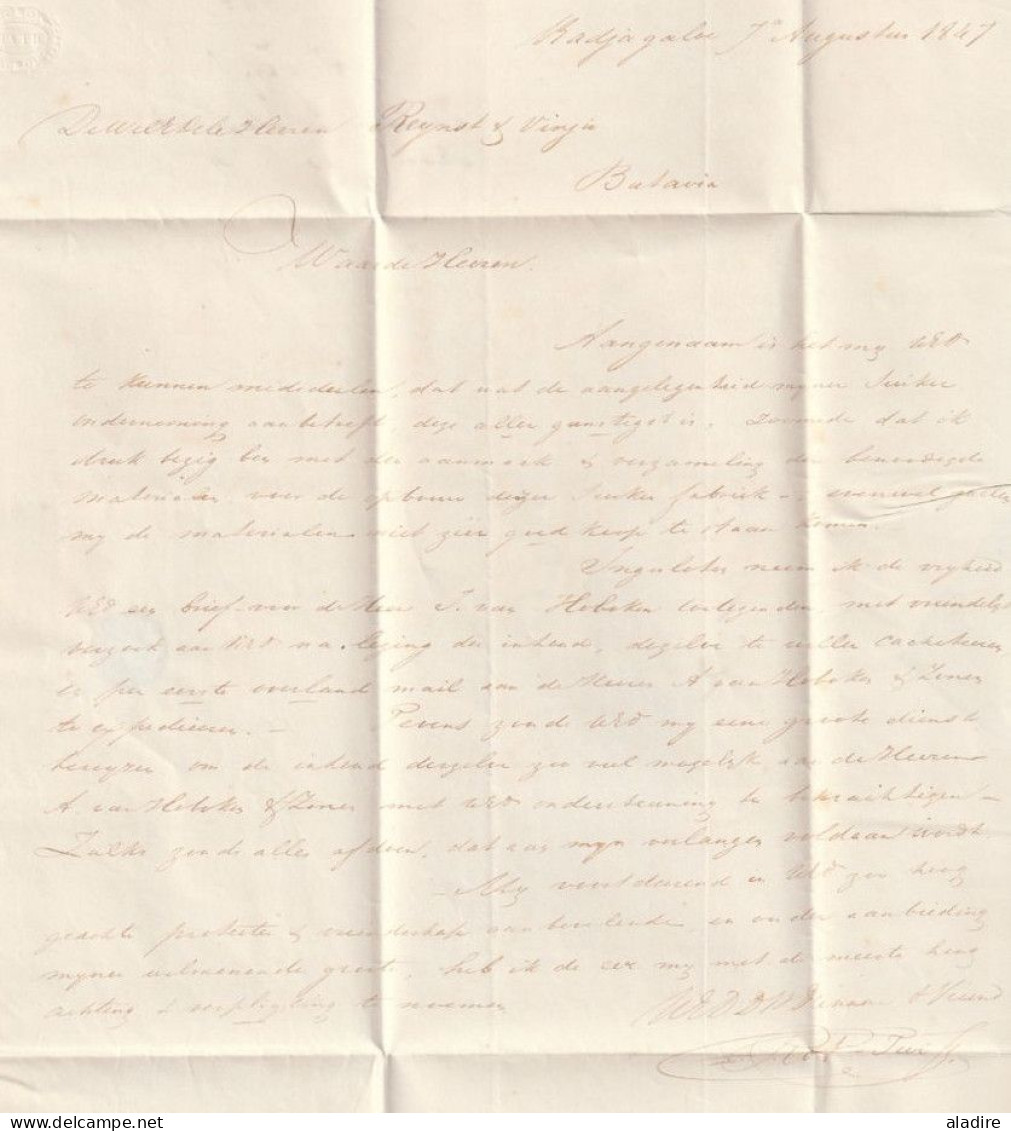 Radjagaloe 7n Augustus 1847
De WelEdele Heeren Reynst & Vinju
Batavia
Waarde Heeren.
Aangenaam is het my UEd
te kunnen mededeelen, dat wat de aangelegenheid myner Suiker
onderneming aanbetreft, deze aller gunstigst is. Zoomede dat ik
druk bezig ben met den aanmaak & verzameling der benoodigde
materialen voor de opbouw dezer Suiker fabriek – evenwel zullen
my de materialen niet zeer goed koop te staan komen. –
Ingesloten neem ik de vryheid
UEd een brief voor de Heer J. van Hoboken toetezenden, met vriendelyk
verzoek aan UEd na lezing der inhoud, dezelve te willen cachetteeren
en per eerste overland mail aan de Heeren A van Hoboken & Zonen
te expedieeren. – Tevens zoude UEd my eene groote dienst
bewyzen om de inhoud dezelve zoo veel mogelyk aan de Heeren
A. van Hoboken & Zonen met UEd ondersteuning te bekrachtigen –
Zulks zoude alles afdoen, dat aan myn verlangen voldaan wordt.
My voortdurend in UEd zoo hoog
geachte protectie & vriendschap aanbevelende, en onder aanbieding
myner welmeenende groete, heb ik de eer my met de meeste hoog
achting & verpligting te noemen
UEDDWDienaar & Vriend
aladire